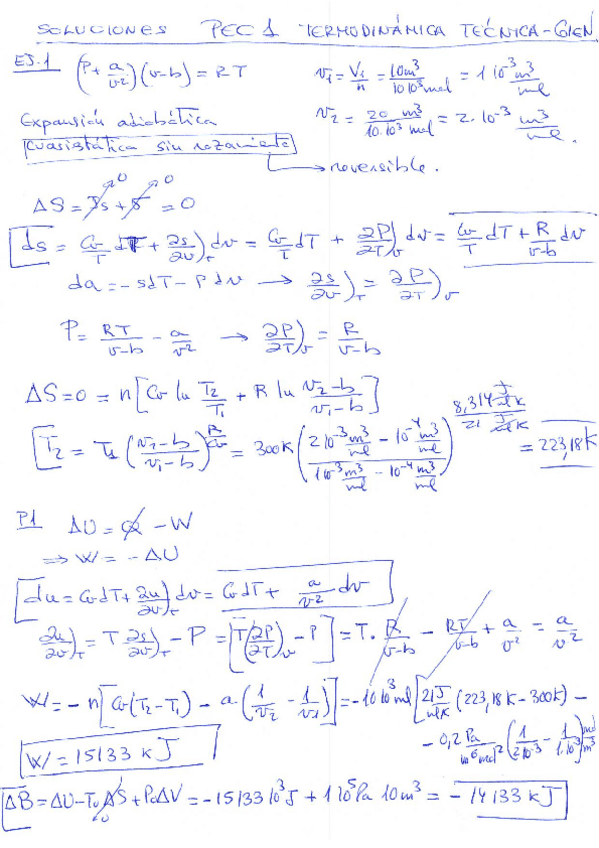 SOLUCIONES PEC 1 TERMODINÁMICA TÉCNICA - GIEN.
EJ.1 (P + a/v²)(v-b) = RT
v₁ = V₁/n = 10m³/10·10³mol = 1·10⁻³ m³/mol
Expansión adiabática
v₂ = 20 m³/10·10³ mol = 2·10⁻³ m³/mol.
cuasistática sin rozamiento → reversible.
ΔS = Js + σ = 0
ds = Cv/T dT + ∂s/∂v)T dv = Cv/T dT + ∂P/∂T)v dv = Cv/T dT + R/(v-b) dv
da = -sdT - Pdv → ∂s/∂v)T = ∂P/∂T)v
P = RT/(v-b) - a/v² → ∂P/∂T)v = R/(v-b)
ΔS = 0 = n[Cv ln T₂/T₁ + R ln (v₂-b)/(v₁-b)]
T₂ = T₁ (v₂-b / v₁-b)^(R/Cv) = 300K (2·10⁻³ m³/mol - 10⁻⁴ m³/mol / 1·10⁻³ m³/mol - 10⁻⁴ m³/mol)^(8,314 J/mol K / 21 J/mol K) = 223,18K
P1 ΔU = Q - W
⇒ W = -ΔU
du = Cv dT + ∂u/∂v)T dv = Cv dT + a/v² dv
∂u/∂v)T = T ∂s/∂v)T - P = [T ∂P/∂T)v - P] = T · R/(v-b) - RT/(v-b) + a/v² = a/v²
W = -n[Cv(T₂-T₁) - a(1/v₂ - 1/v₁)] = -10·10³ mol [21 J/mol K (223,18K - 300K) -
- 0,2 Pa/m⁶mol² (1/2·10⁻³ - 1/1·10⁻³) mol/m³
W = 15133 kJ
ΔB = ΔU - T₀ΔS + P₀ΔV = -15133·10³J + 1·10⁵Pa 10m³ = -14133 kJ